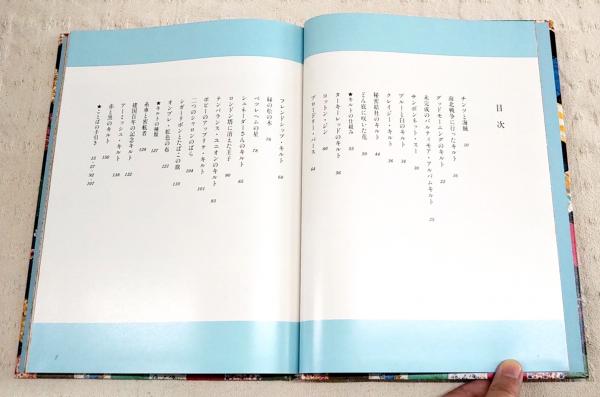 目次
チンツと海賊 10
南北戦争に行ったキルト 16
グッドモーニングのキルト 22
未完成のバルティモア・アルバムキルト 25
サンボンネット・スー 30
ブルーと白のキルト 34
クレイジー・キルト 38
秘密結社のキルト 44
どん底に咲いた花 50
★キルトの仕組み 55
ターキーレッドのキルト 56
コットン・ジン 60
ブロードリー・パース 64
フレンドシップ・キルト 68
緑の松の木 76
ベツレヘムの星 78
シュネーダーさんのキルト 85
ロンドン塔に消えた王子 90
テンパランス・ユニオンのキルト 95
ポピーのアップリケ・キルト 101
二つのシャロンのばら 104
シガーリボンとたばこの旗 110
オンブレ、虹色の布 121
★キルトの種類 127
糸車と密航者 128
建国百年の記念キルト 132
アーミッシュ・キルト 138
赤と黒のキルト 150
★ことばの手引き 15・37・92・107
7